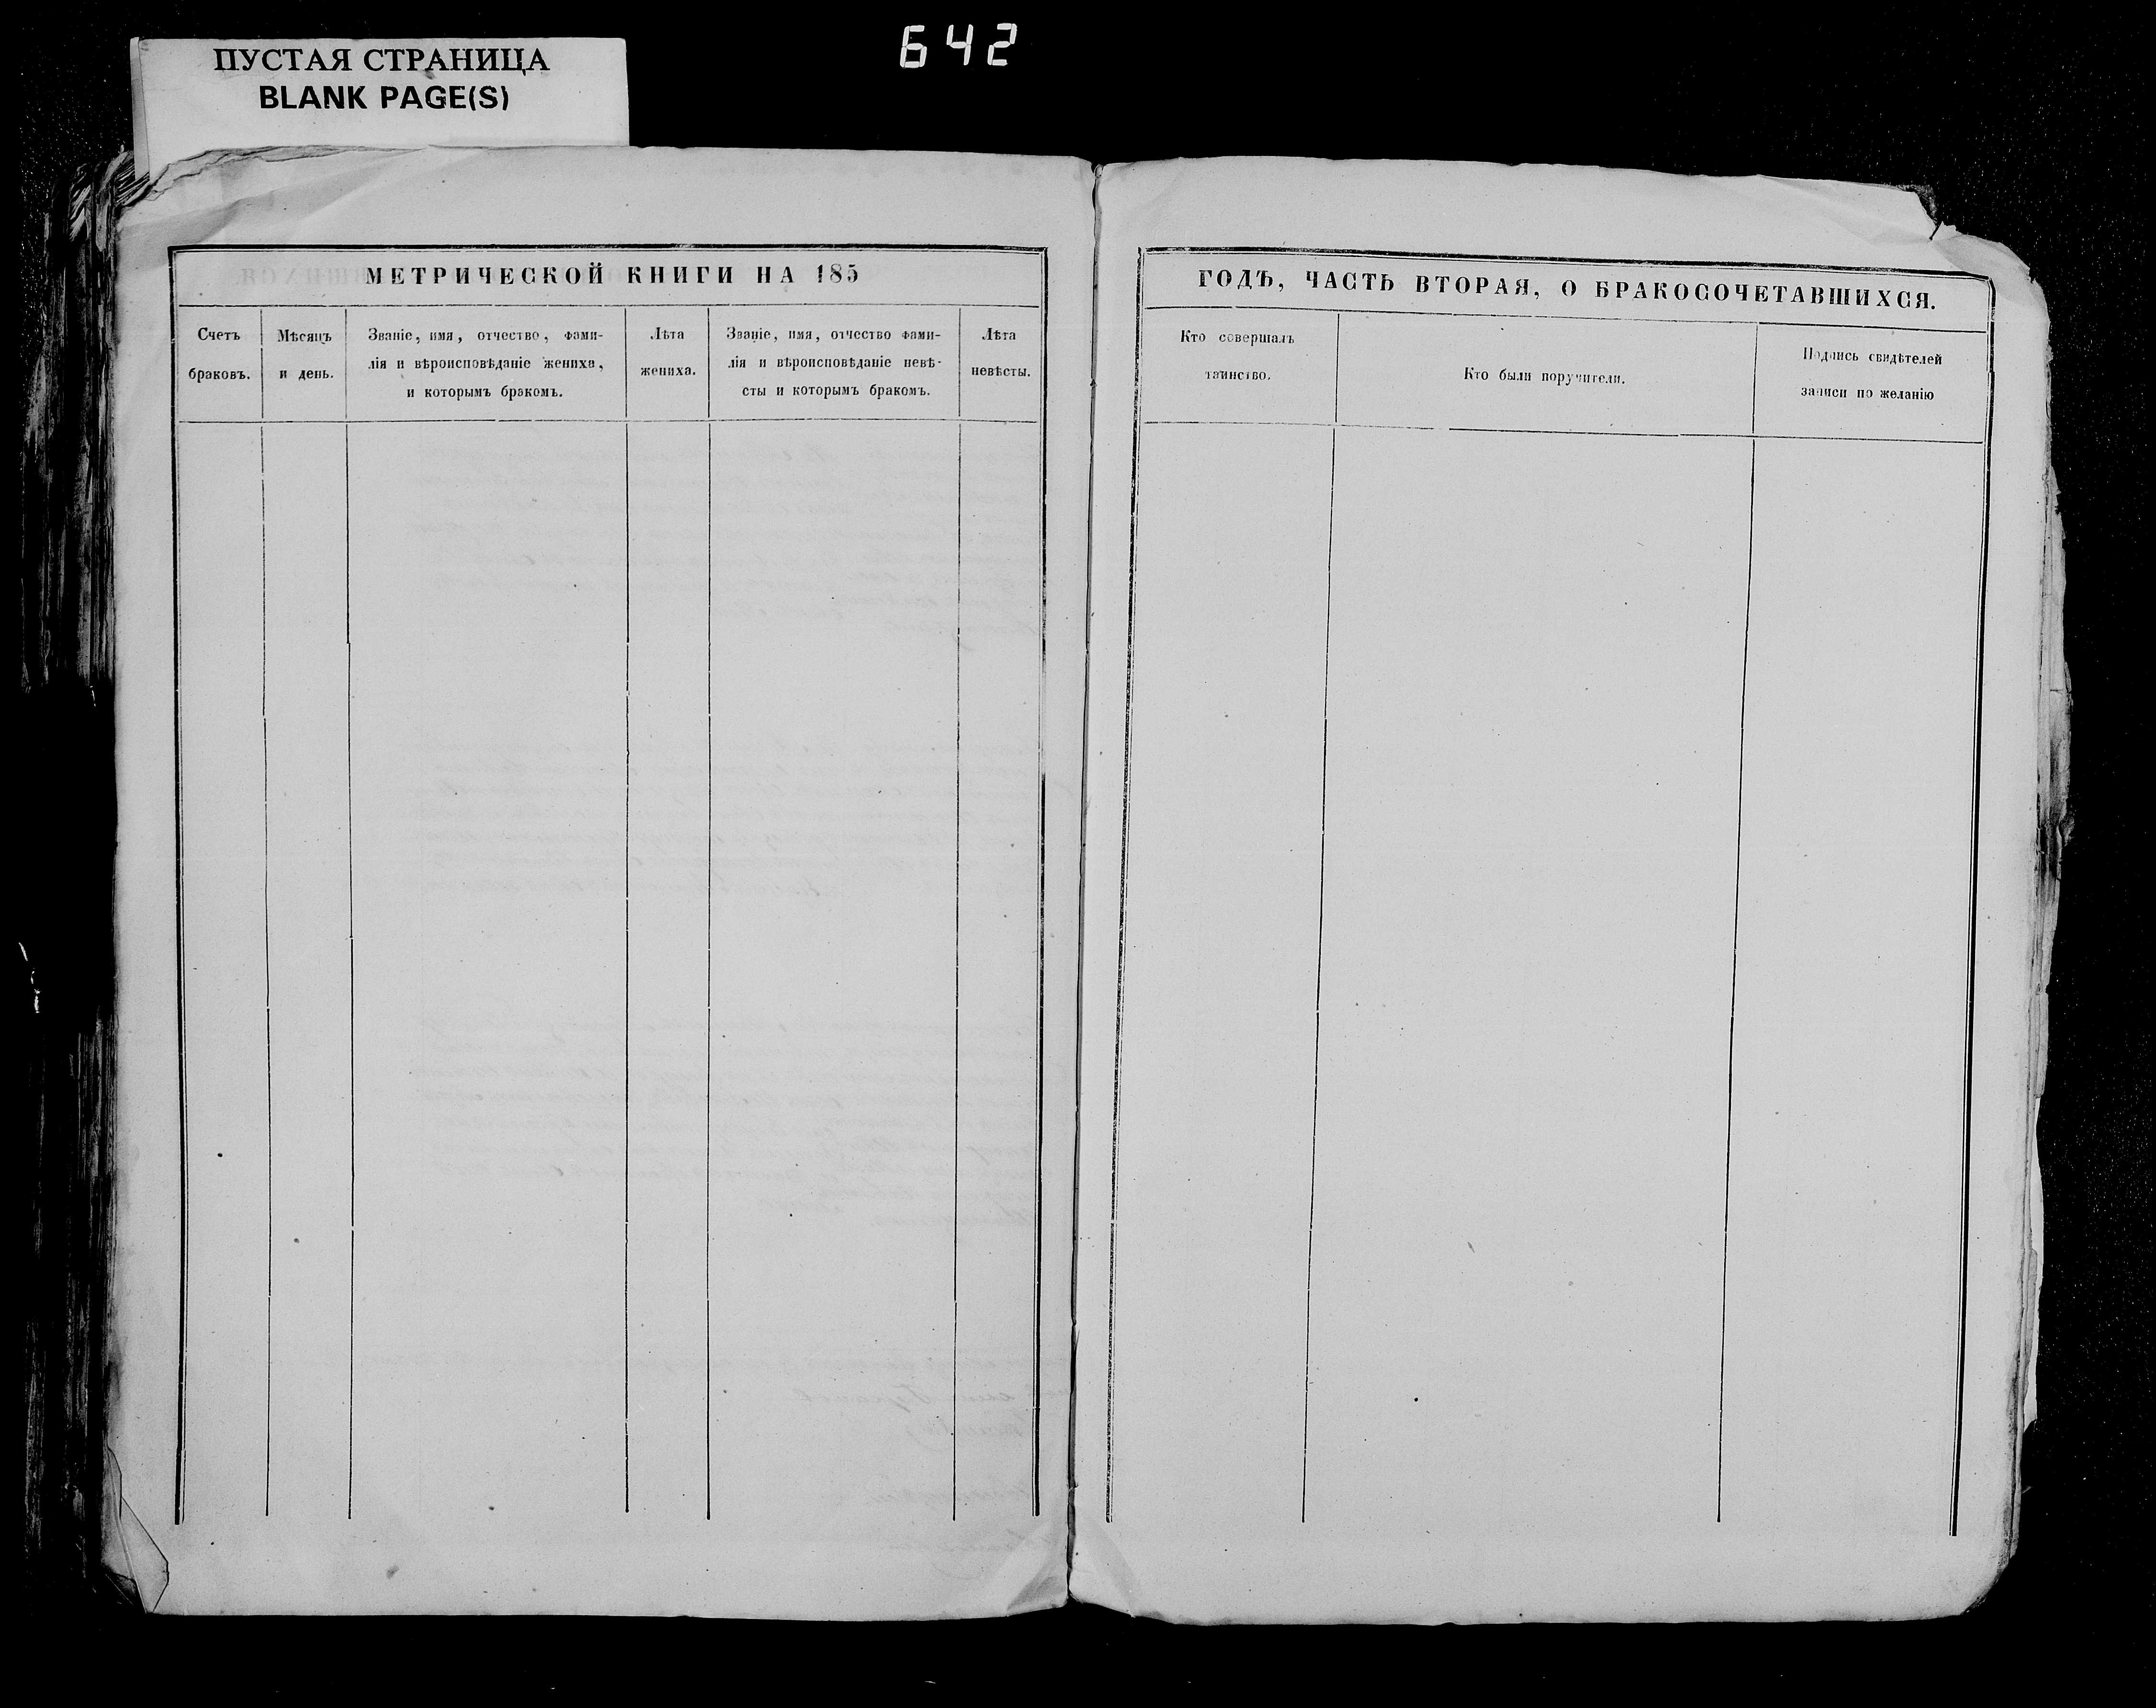 642
ПУСТАЯ СТРАНИЦА
BLANK PAGE(S)
МЕТРИЧЕСКОЙ КНИГИ НА 185
Счетъ
браковъ.
Мѣсяцъ
и день.
Званіе, имя, отчество, фами-
лія и вѣроисповѣданіе жениха,
и которымъ бракомъ.
Лѣта
жениха.
Званіе, имя, отчество фами-
лія и вѣроисповѣданіе невѣ-
сты и которымъ бракомъ.
Лѣта
невѣсты.
ГОДЪ, ЧАСТЬ ВТОРАЯ, О БРАКОСОЧЕТАВШИХСЯ.
Кто совершалъ
таинство.
Кто были поручители.
Подпись свидѣтелей
записи по желанію